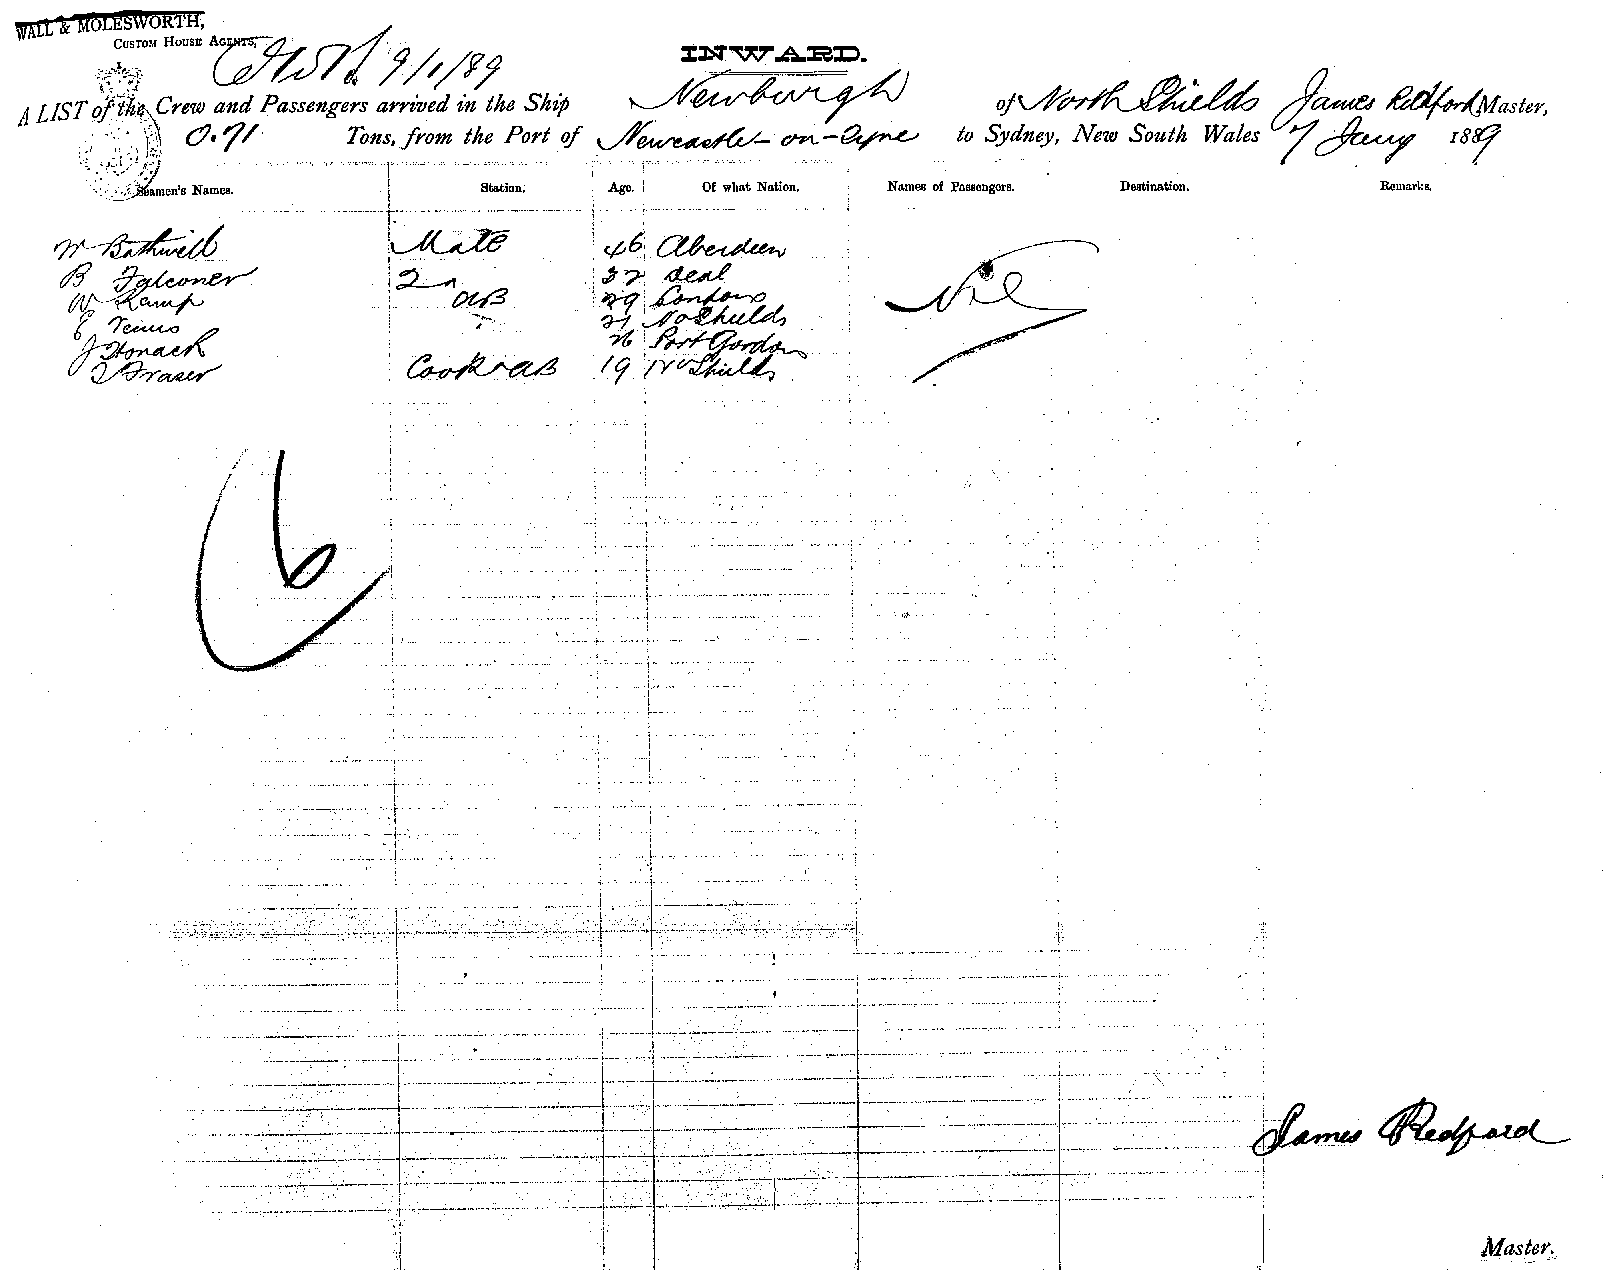 WALL & MOLESWORTH,
CUSTOM HOUSE AGENTS,
9/1/89
INWARD.
A LIST of the Crew and Passengers arrived in the Ship Newburgh of North Shields James Redford Master,
0.71 Tons, from the Port of Newcastle-on-Tyne to Sydney, New South Wales 7 Jany 1889
Seamen's Names. Station. Age. Of what Nation. Names of Passengers. Destination. Remarks.
W Bothwell Mate 46 Aberdeen
B Falconer 2n 32 Deal
W Kemp AB 29 London
E 21 No Shields
J 26 Port Gordon
Fraser Cook & AB 19 No Shields
Nil
6
James Redford
Master.